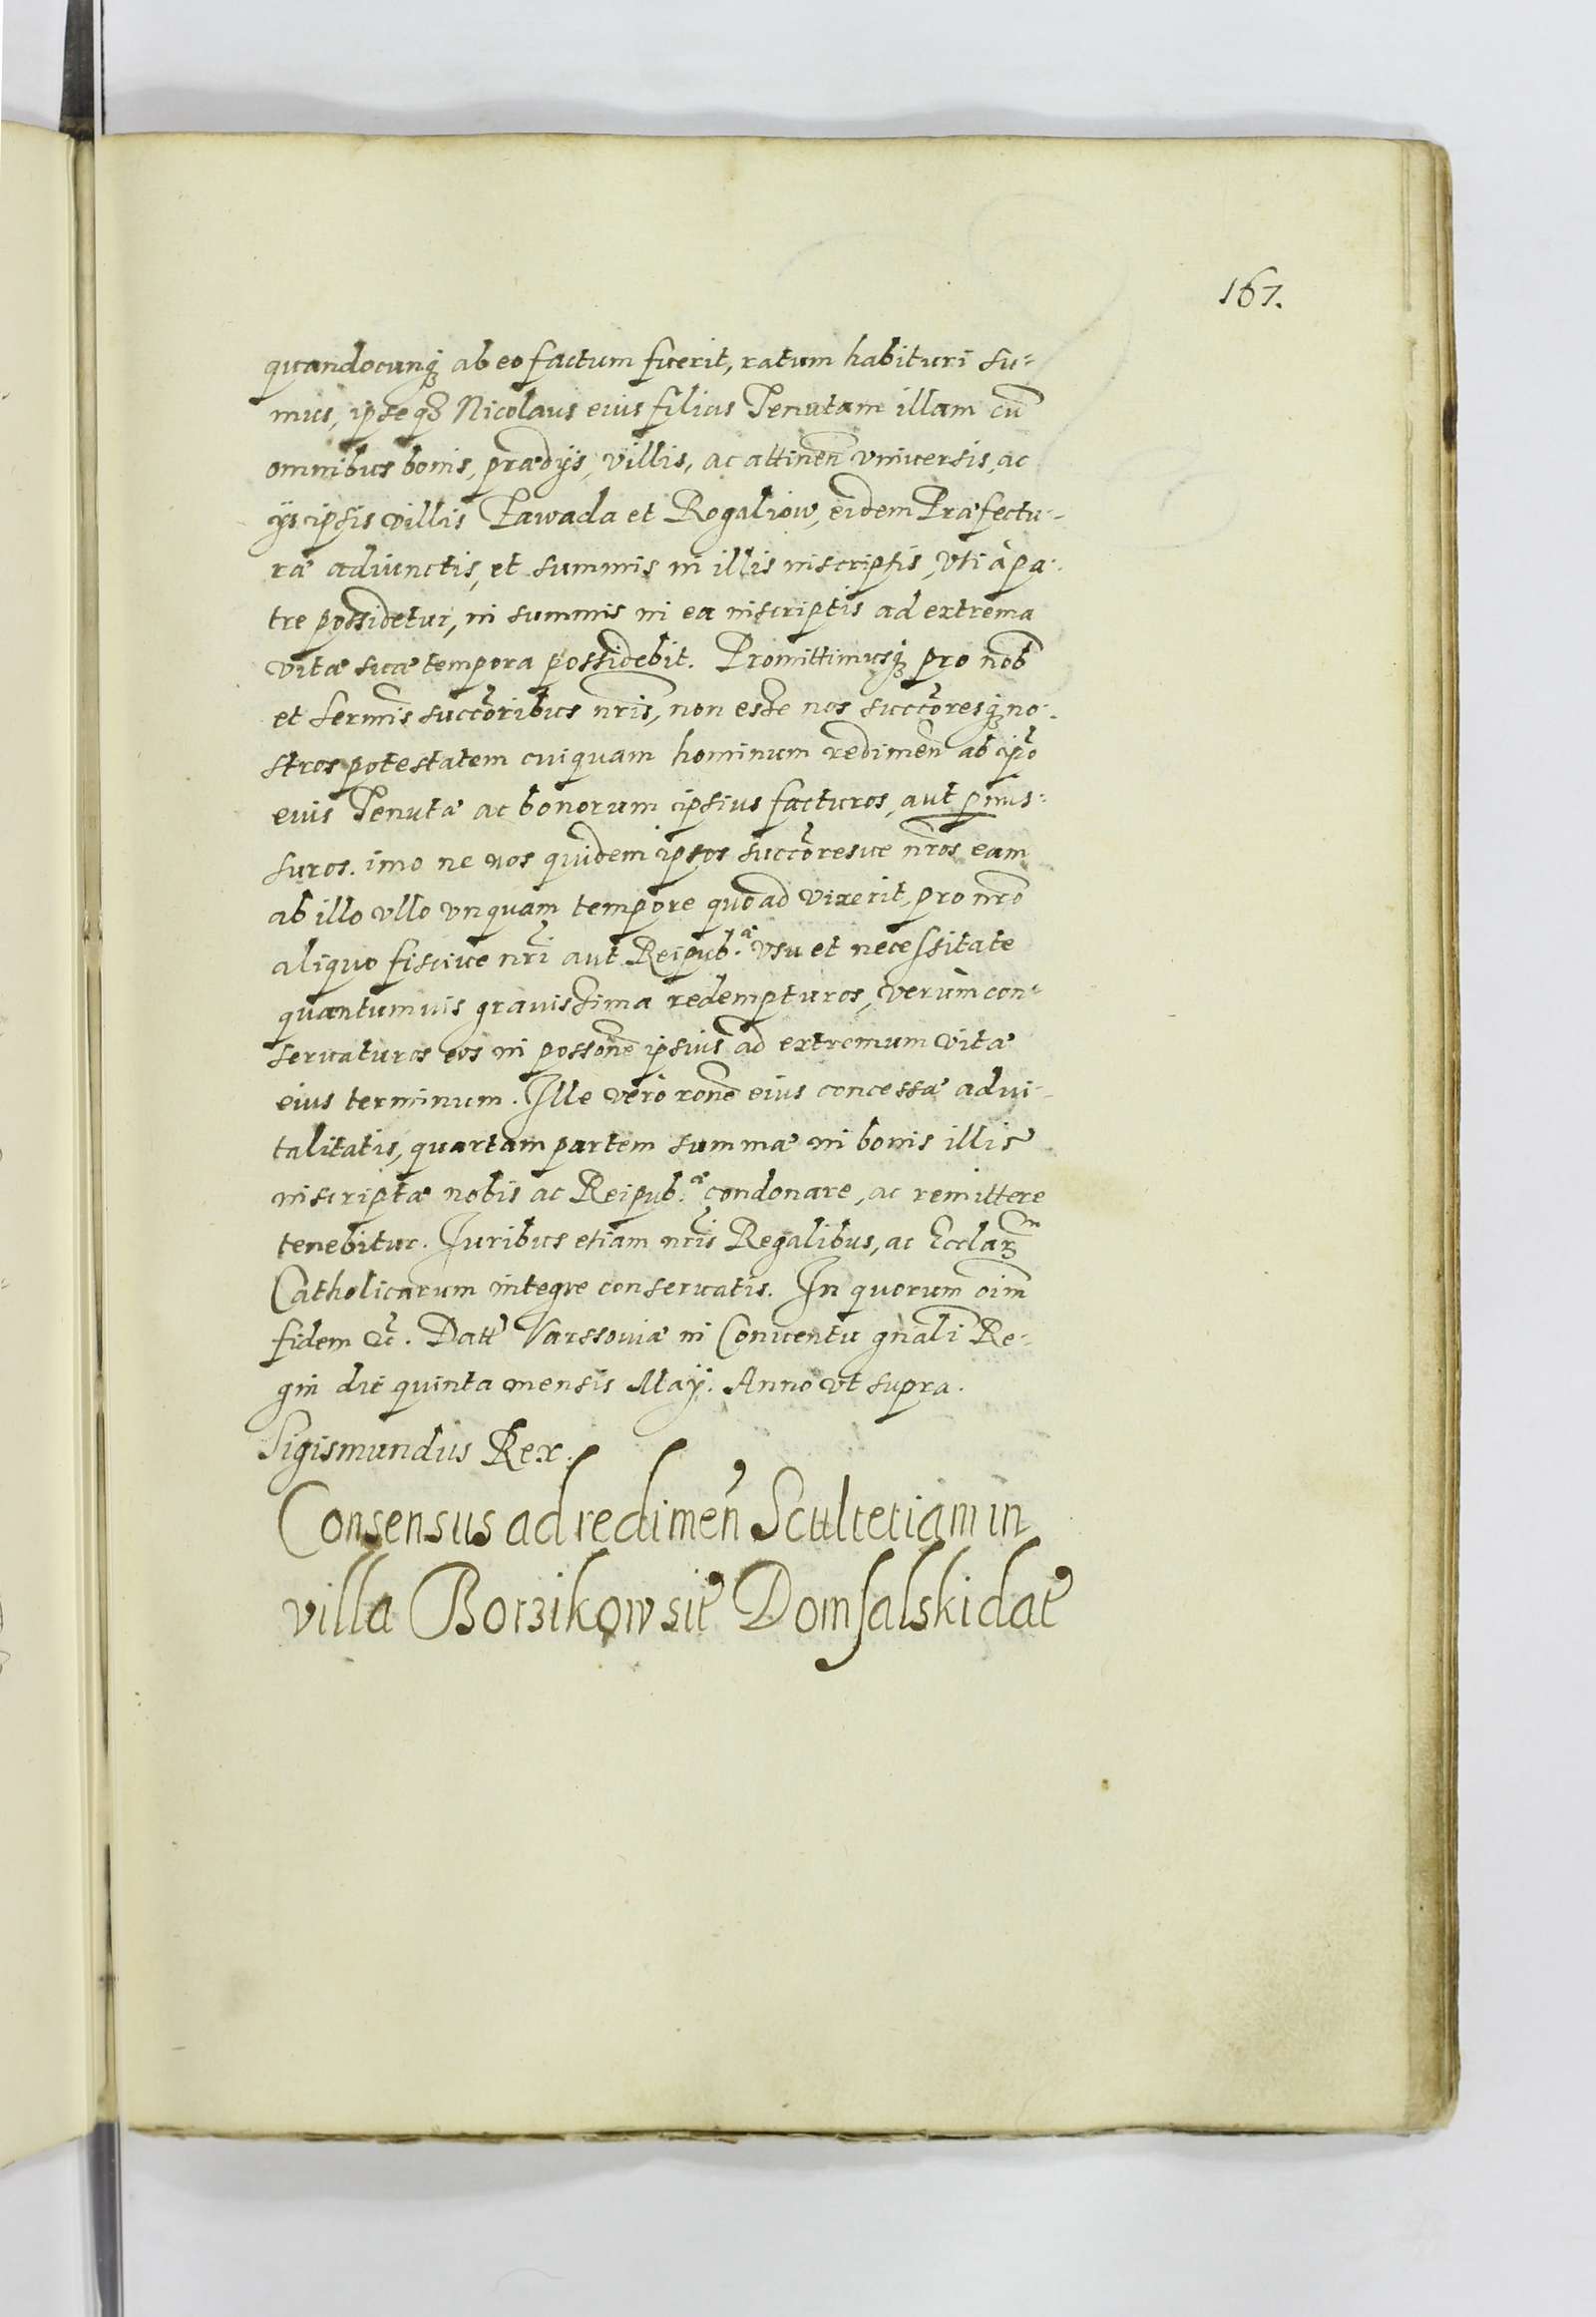 167.
quandocunq₃ ab eo factum fuerit, ratum habituri su-
mus, ipseq₃ Nicolaus eius filius Tenutam illam cū
omnibus bonis, prædijs, villis, ac attinen̄ vniuersis, ac
ijs ipsis villis Pawada et Rogaliow, eidem Præfectu-
ræ adiunctis, et summis in illis inscriptis, vti à pa-
tre possidetur, in summis in ea inscriptis ad extrema
vitæ suæ tempora possidebit. Promittimusq₃ pro nob̄
et Serm̄is succōribus nr̄is, non esse nos succōresq₃ no-
stros potestatem cuiquam hominum redimen̄ ab ipō
eius Tenutæ ac bonorum ipsius facturos, aut p̱mis-
suros. imo ne nos quidem ipsos succōresue nr̄os eam
ab illo vllo vnquam tempore quoad vixerit, pro nr̄o
aliquo fisciue nr̄i aut Reipub.æ vsu et necessitate
quantumuis grauissima redempturos, verùm con-
seruaturos eos in possonē ipsius ad extremum vitæ
eius terminum. Ille vero ronē eius concessæ adui-
talitatis, quartam partem summæ in bonis illis
inscriptæ nobis ac Reipub.æ condonare, ac remittere
tenebitur. Juribus etiam nr̄is Regalibus, ac Ecclar̄₃
Catholicarum integre conseruatis. In quorum oīm
fidem &c̄. Datt̄ Varssouiæ in Conuentu gn̄ali Re-
gin̄ die quinta mensis Maij. Anno vt supra.
Sigismundus Rex.
Consensus ad redimen̄ Scultetiam in
villa Borzikow sit̄ Domsalski dat̄